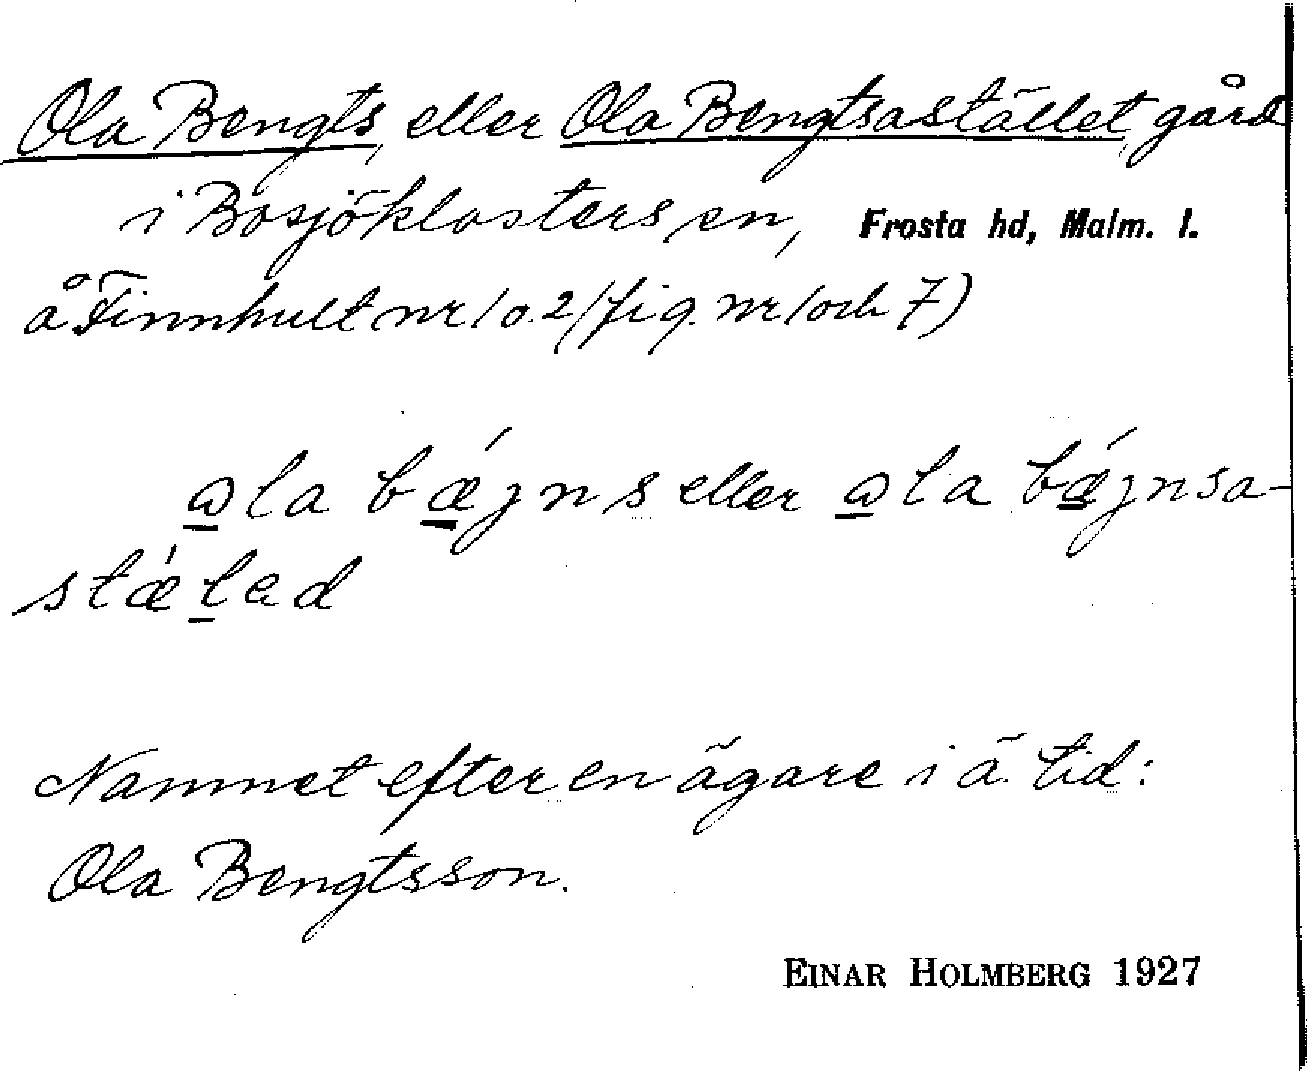 Ola Bengts, eller Ola Bengtsastället, gård
i Bosjöklosters sn, Frosta hd, Malm. l.
å Finnhult nr 1 o. 2 (fig. nr 1 och 7)
ala bǽjns eller ala bǽjnsa-
stǽlad
Namnet efter en ägare i ä. tid:
Ola Bengtsson.
EINAR HOLMBERG 1927